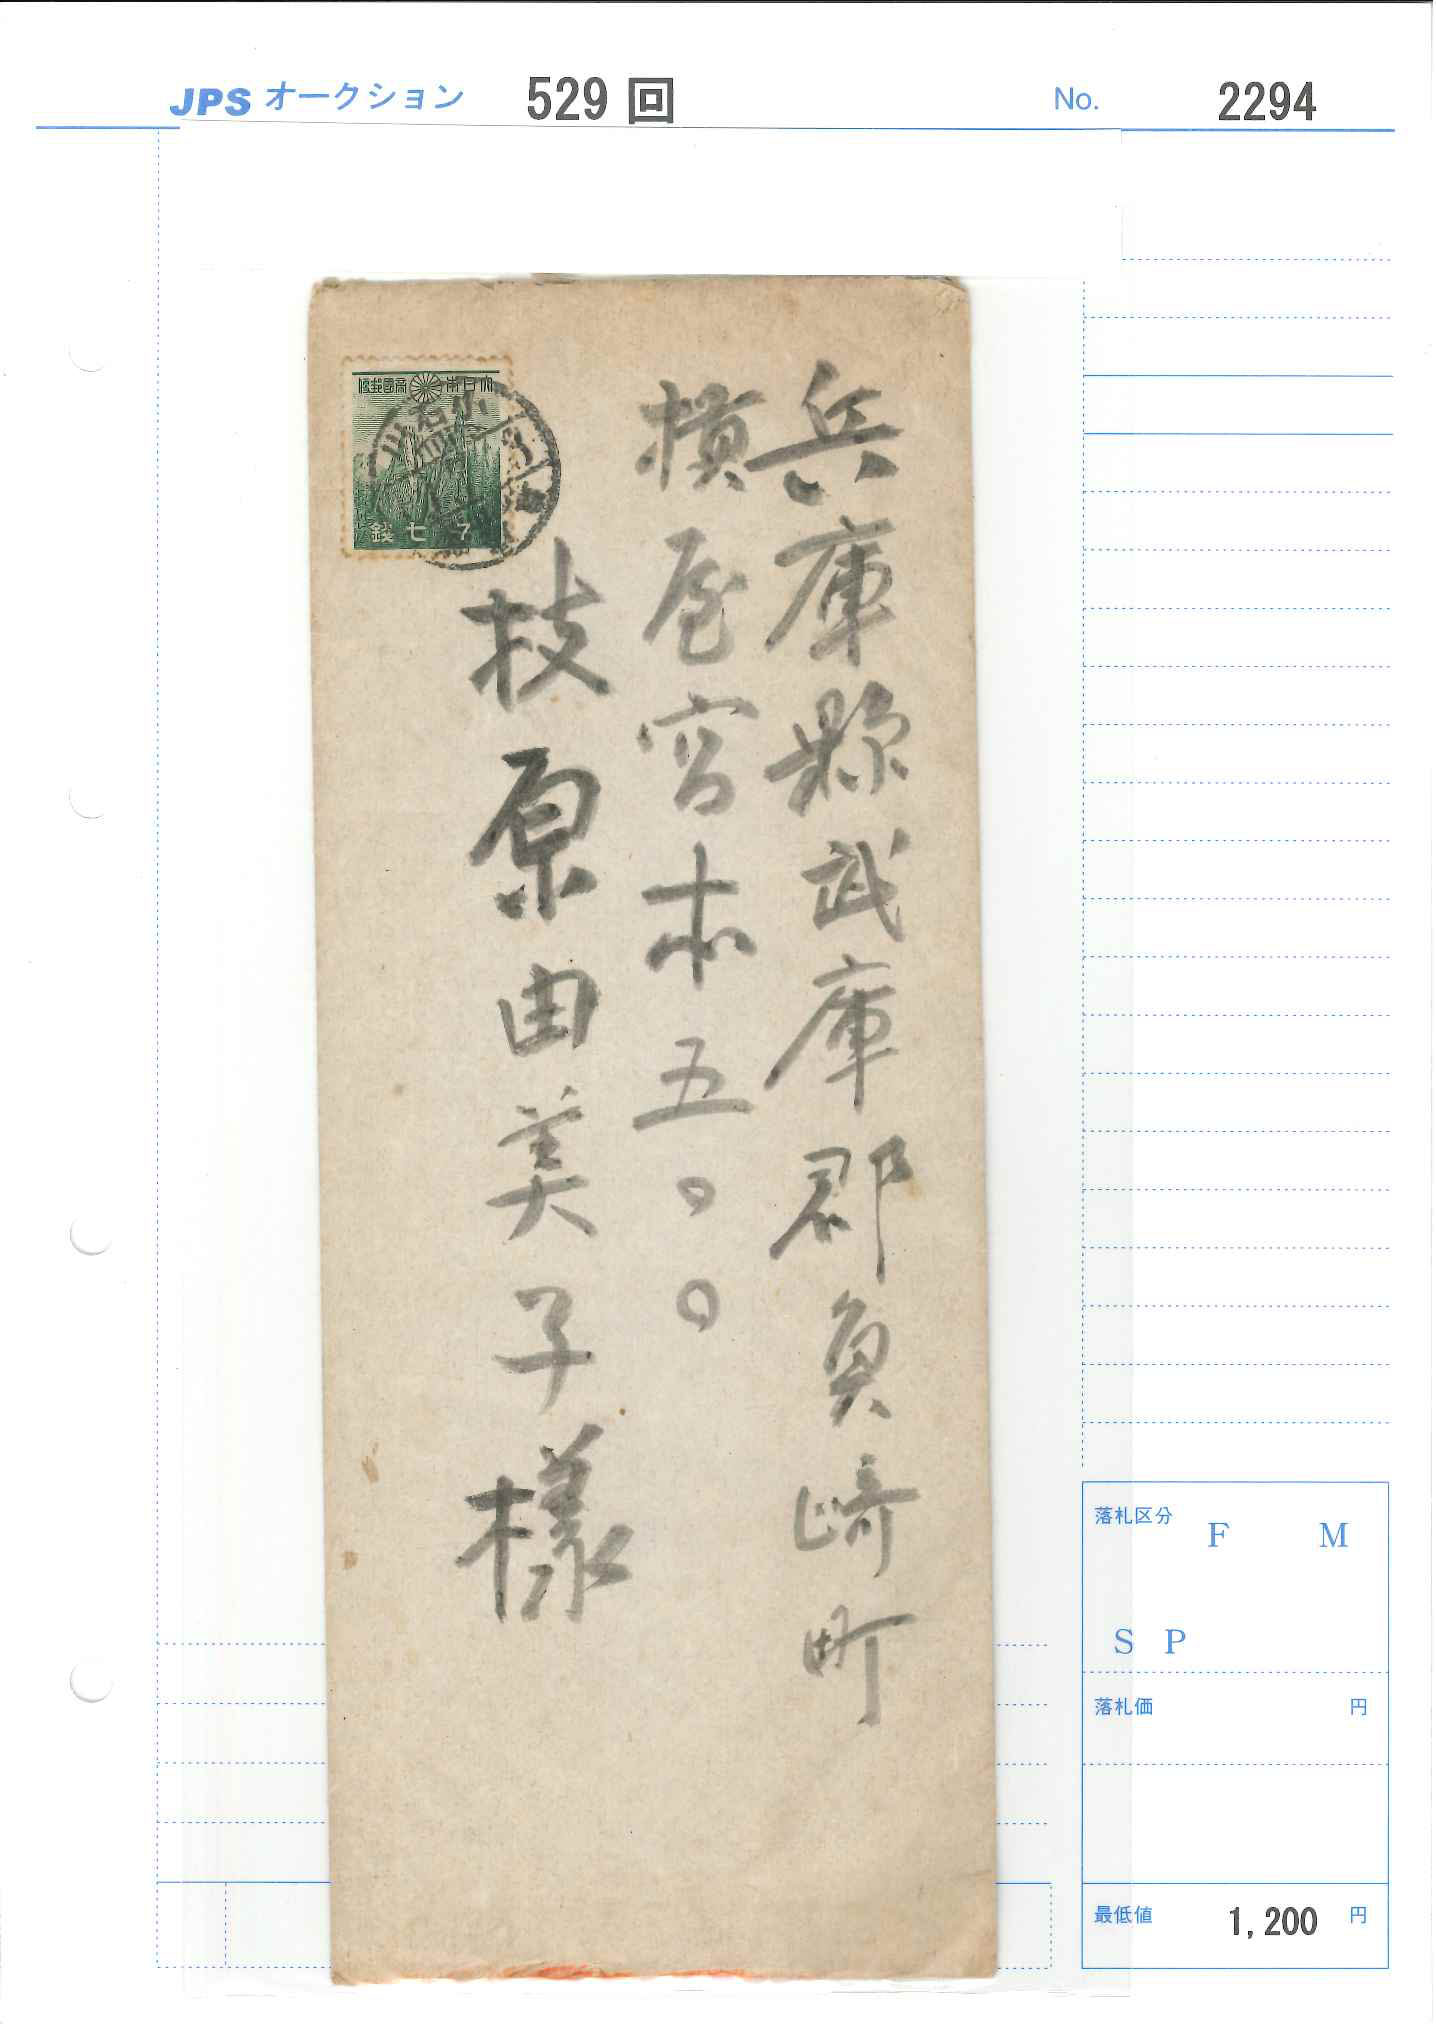 JPS オークション 529 回 No. 2294
大日本帝國郵便
七銭 7
兵庫縣武庫郡魚崎町
横屋宮本五〇〇
枝原由美子様
落札区分 F M
S P
落札価 円
最低値 1,200 円